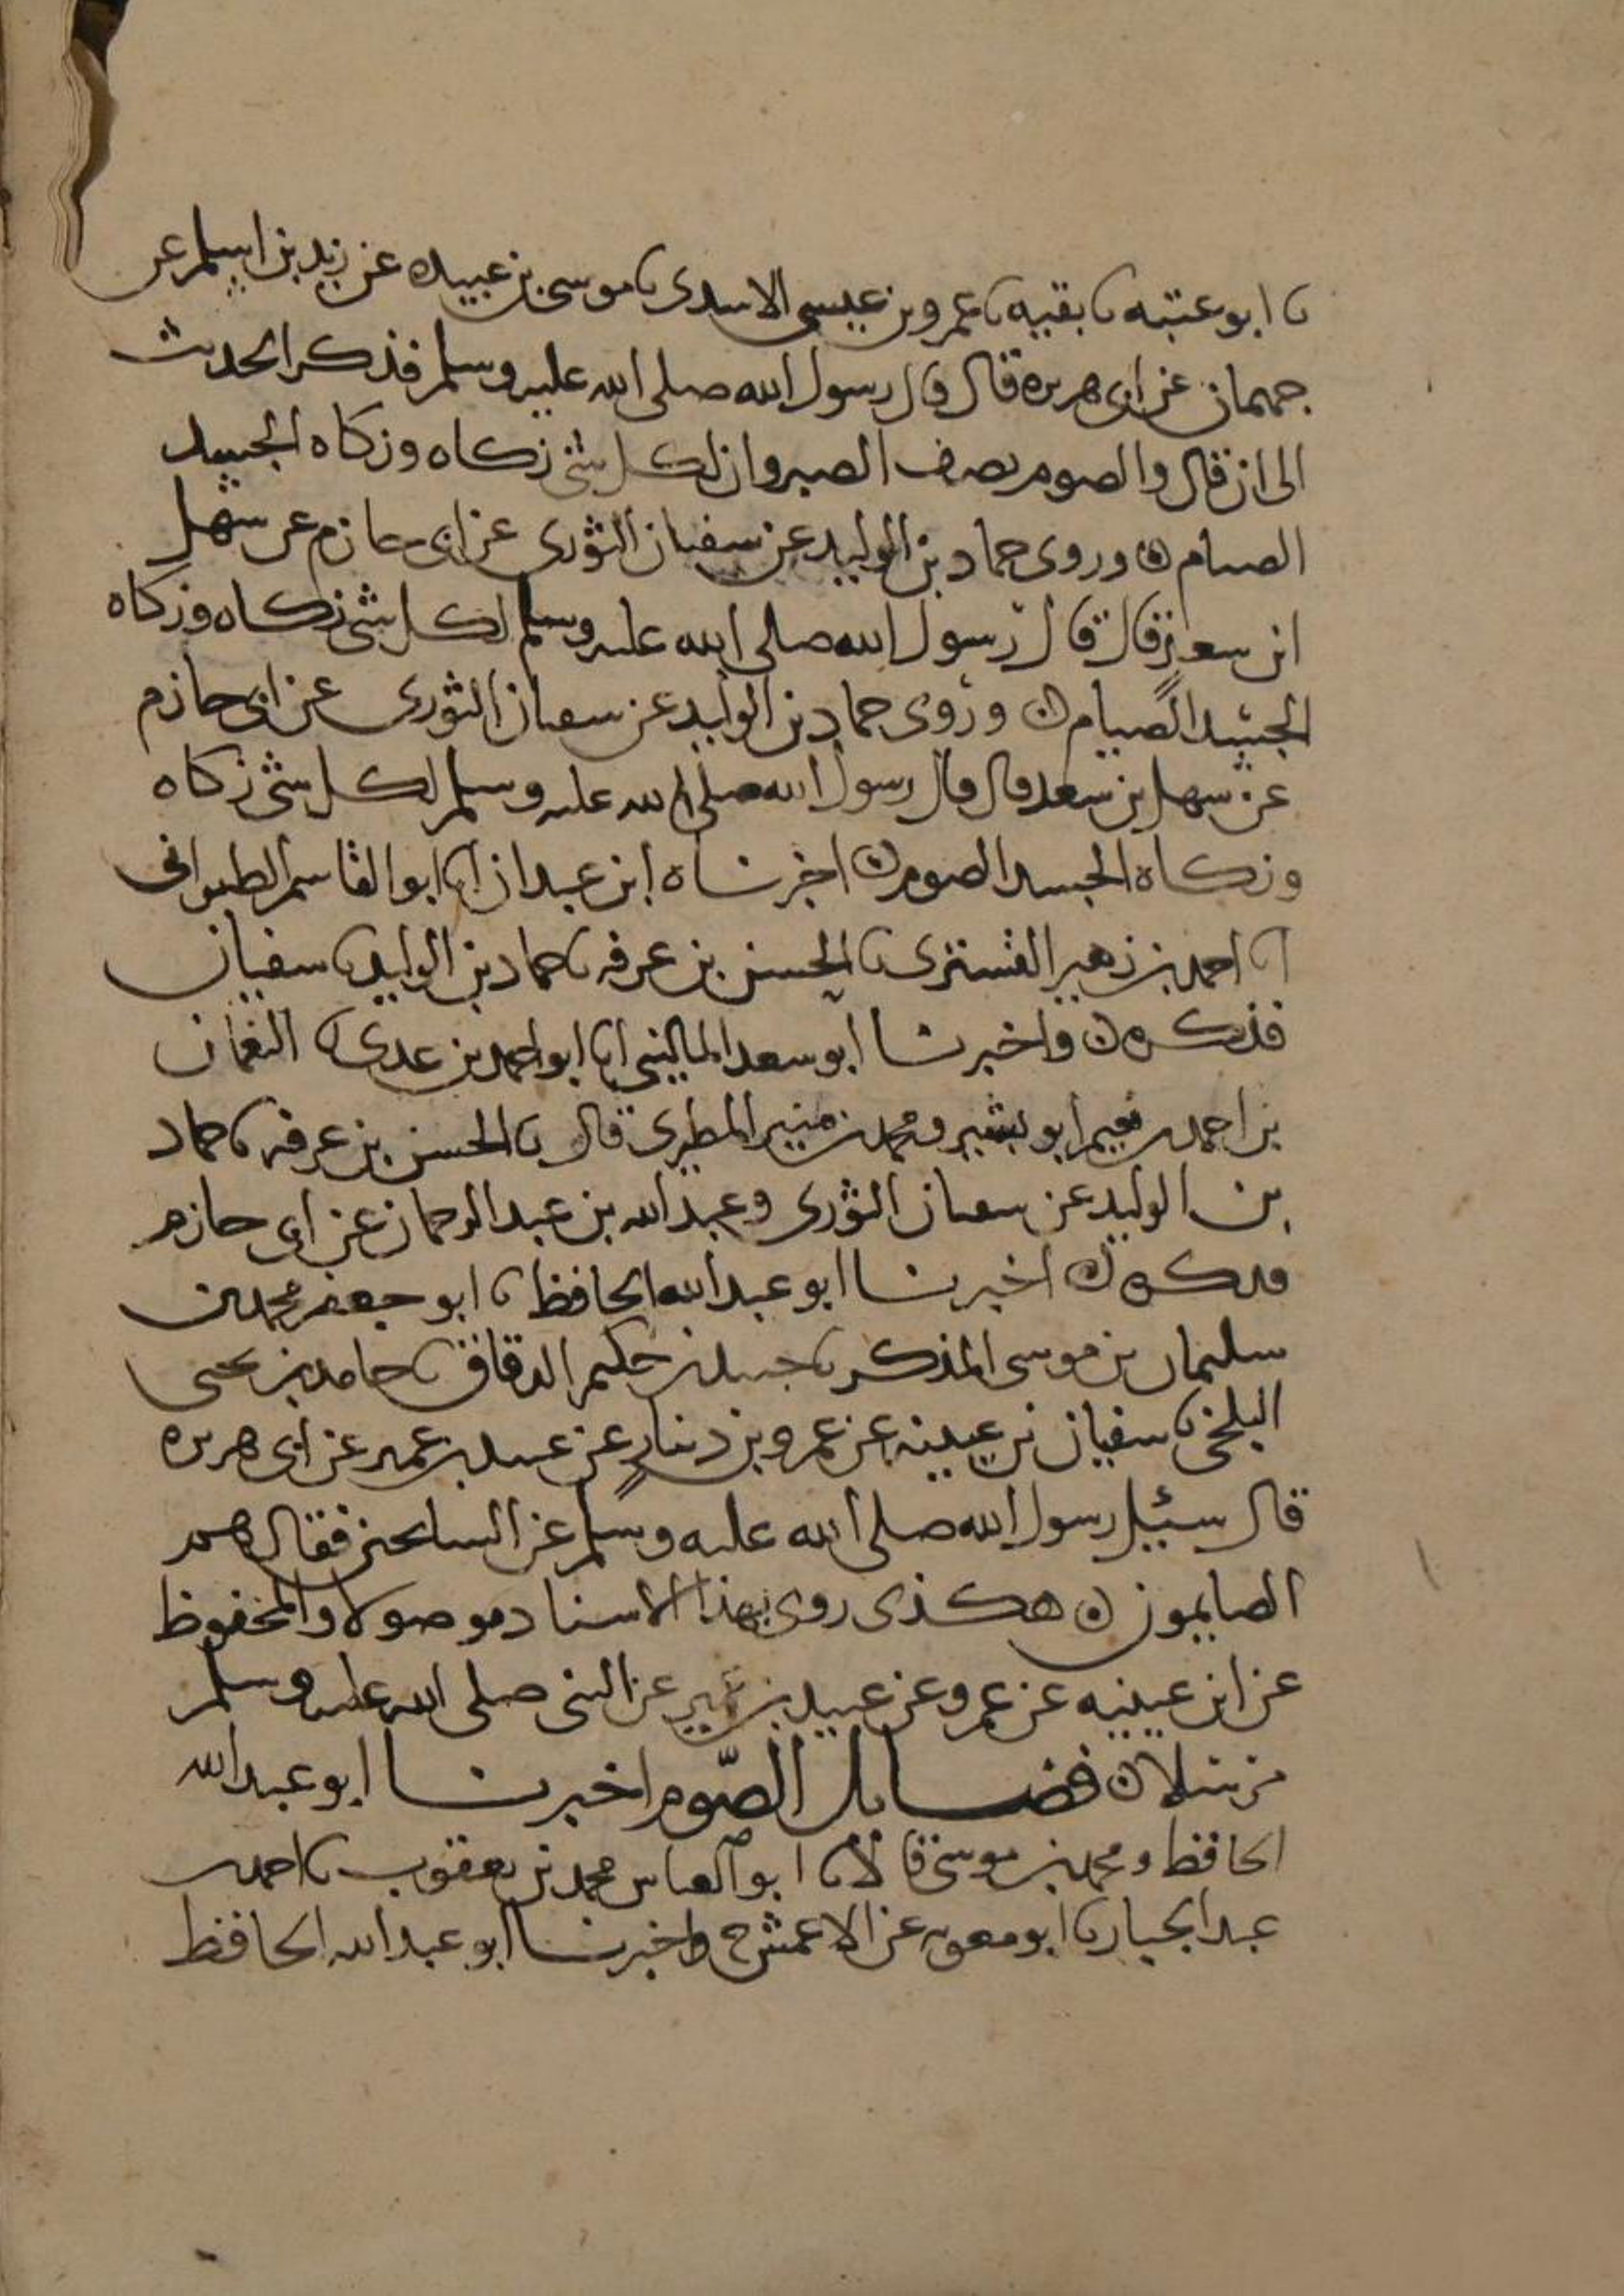 نا ابو عتبه نا بقيه نا عمرو بن عيسى الاسدى نا موسى بن عبيده عن زيد بن اسلم عن
جمهمان عن ابى هريره قال قال رسول الله صلى الله عليه وسلم فذكر الحديث
الى ان قال والصوم نصف الصبر وان لكل شئ زكاه وزكاه الجسد
الصيام ه وروى حماد بن الوليد عن سفيان الثورى عن ابى حازم عن سهل
ابن سعد قال قال رسول الله صلى الله عليه وسلم لكل شئ زكاه وزكاه
الجسد الصيام ه وروى حماد بن الوليد عن سفيان الثورى عن ابى حازم
عن سهل بن سعد قال قال رسول الله صلى الله عليه وسلم لكل شئ زكاه
وزكاة الجسد الصوم ه اخبرناه ابن عبدان انا ابو القاسم الطبرانى
نا احمد بن زهير التسترى نا الحسن بن عرفه نا حماد بن الوليد نا سفيان
فذكره ه واخبرنا ابو سعد المالينى انا ابو احمد بن عدى نا النعمان
بن احمد بن نعيم ابو بشير ومحمد بن منير المطيرى قال نا الحسن بن عرفه نا حماد
بن الوليد عن سفيان الثورى وعبد الله بن عبد الرحمان عن ابى حازم
فذكره ه اخبرنا ابو عبد الله الحافظ نا ابو جعفر محمد بن
سليمان بن موسى المذكر نا جنيد بن حكيم الدقاق نا حامد بن يحيى
البلخى نا سفيان بن عيينه عن عمرو بن دينار عن عبيد بن عمير عن ابى هريره
قال سئيل رسول الله صلى الله عليه وسلم عن السايحين فقال هم
الصايمون ه هكذى روى بهذا الاسناد موصولا والمحفوظ
عن ابن عيينه عن عمرو عن عبيد بن عمير عن النبى صلى الله عليه وسلم
مرسلا ه فضايل الصّوم اخبرنا ابو عبد الله
الحافظ ومحمد بن موسى قالا نا ابو العباس محمد بن يعقوب نا احمد بن
عبد الجبار نا ابو معويه عن الاعمش ح واخبرنا ابو عبد الله الحافظ